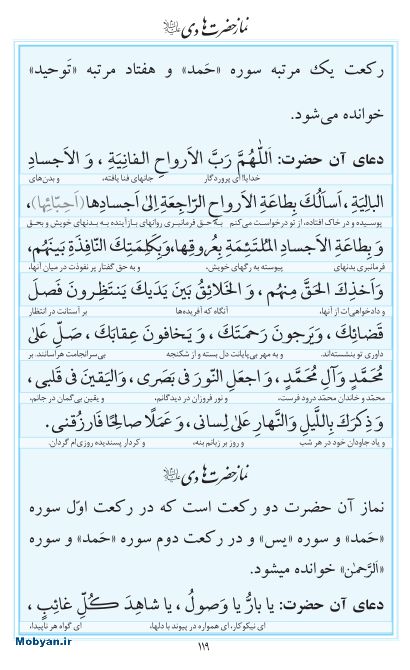 نمازحضرت هادی علیه‌السلام
رکعت یک مرتبه سوره «حَمد» و هفتاد مرتبه «تَوحید»
خوانده می‌شود.
دعای آن حضرت: اَللّٰهُمَّ رَبَّ الاَرواحِ الفانِيَةِ ، وَ الاَجسادِ
خدایا! ای پروردگار جانهای فنا یافته، و بدن‌های
البالِيَةِ ، اَسأَلُكَ بِطاعَةِ الاَرواحِ الرّاجِعَةِ اِلىٰ اَجسادِها(اَحِبّائِها) ،
پوسیده و در خاک افتاده، از تو درخواست می‌کنم به حق فرمانبری روانهای بازآینده به بدنهای خویش و بحق
وَ بِطاعَةِ الاَجسادِ المُلتَئِمَةِ بِعُروقِها،وَبِكَلِمَتِكَ النّافِذَةِ بَينَهُم،
فرمانبری بدنهای پیوسته به رگهای خویش، و به حق گفتار پر نفوذت در میان آنها،
وَ اَخذِكَ الحَقَّ مِنهُم ، وَ الخَلائِقُ بَينَ يَدَيكَ يَنتَظِرونَ فَصلَ
و دادخواهی‌ات از آنها، آنگاه که آفریده‌ها بر آستانت در انتظار
قَضائِكَ ، وَيَرجونَ رَحمَتَكَ ، وَ يَخافونَ عِقابَكَ ، صَلِّ عَلىٰ
داوری تو بنشسته‌اند. و به مهر بی‌پایانت دل بسته و از شکنجه بی‌سرانجامت هراسانند. بر
مُحَمَّدٍ وَآلِ مُحَمَّدٍ ، وَ اجعَلِ النّورَ فى بَصَرى ، وَاليَقينَ فى قَلبى ،
محمّد و خاندان محمّد درود فرست، و نور فروزان در دیدگانم، و یقین بی‌گمان در جانم،
وَ ذِكرَكَ بِاللَّيلِ وَالنَّهارِ عَلىٰ لِسانى ، وَ عَمَلًا صالِحًا فَارزُقنى.
و یاد جاودان خود در هر شب و روز بر زبانم بنه، و کردار پسندیده روزی‌ام گردان.
نمازحضرت هادی علیه‌السلام
نماز آن حضرت دو رکعت است که در رکعت اوّل سوره
«حَمد» و سوره «یس» و در رکعت دوم سوره «حَمد» و سوره
«اَلرَّحمٰن» خوانده میشود.
دعای آن حضرت: يا بارُّ يا وَصولُ ، يا شاهِدَ كُلِّ غائِبٍ ،
ای نیکوکار، ای همواره در پیوند با دلها، ای گواه هر ناپیدا،
۱۱۹
Mobyan.ir